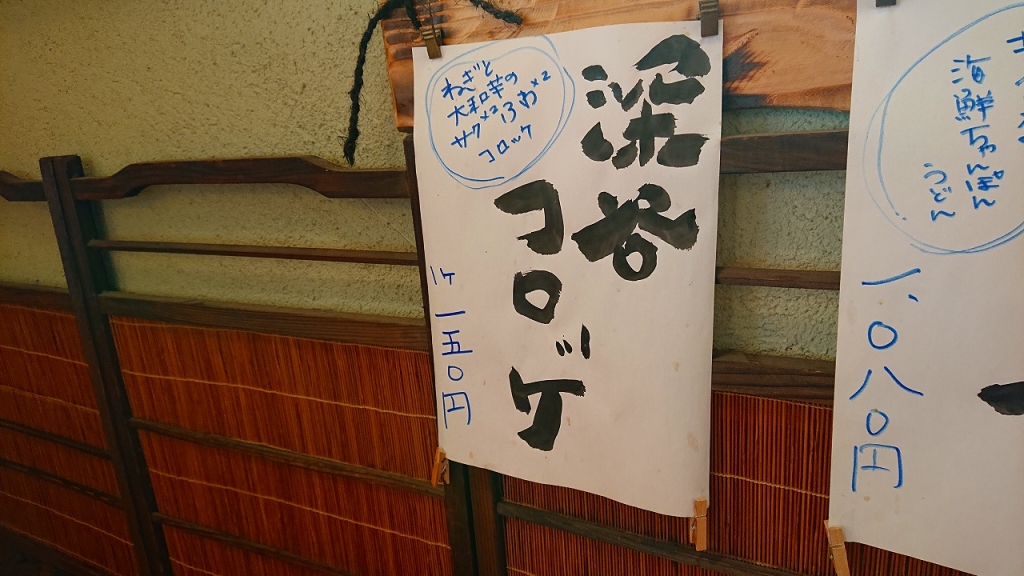 深谷
コロッケ
ねぎと
大和芋の
サク×2ふわ×2
コロッケ
1ケ 一五〇円
海鮮ちゃんぽん
うどん
一、〇八〇円